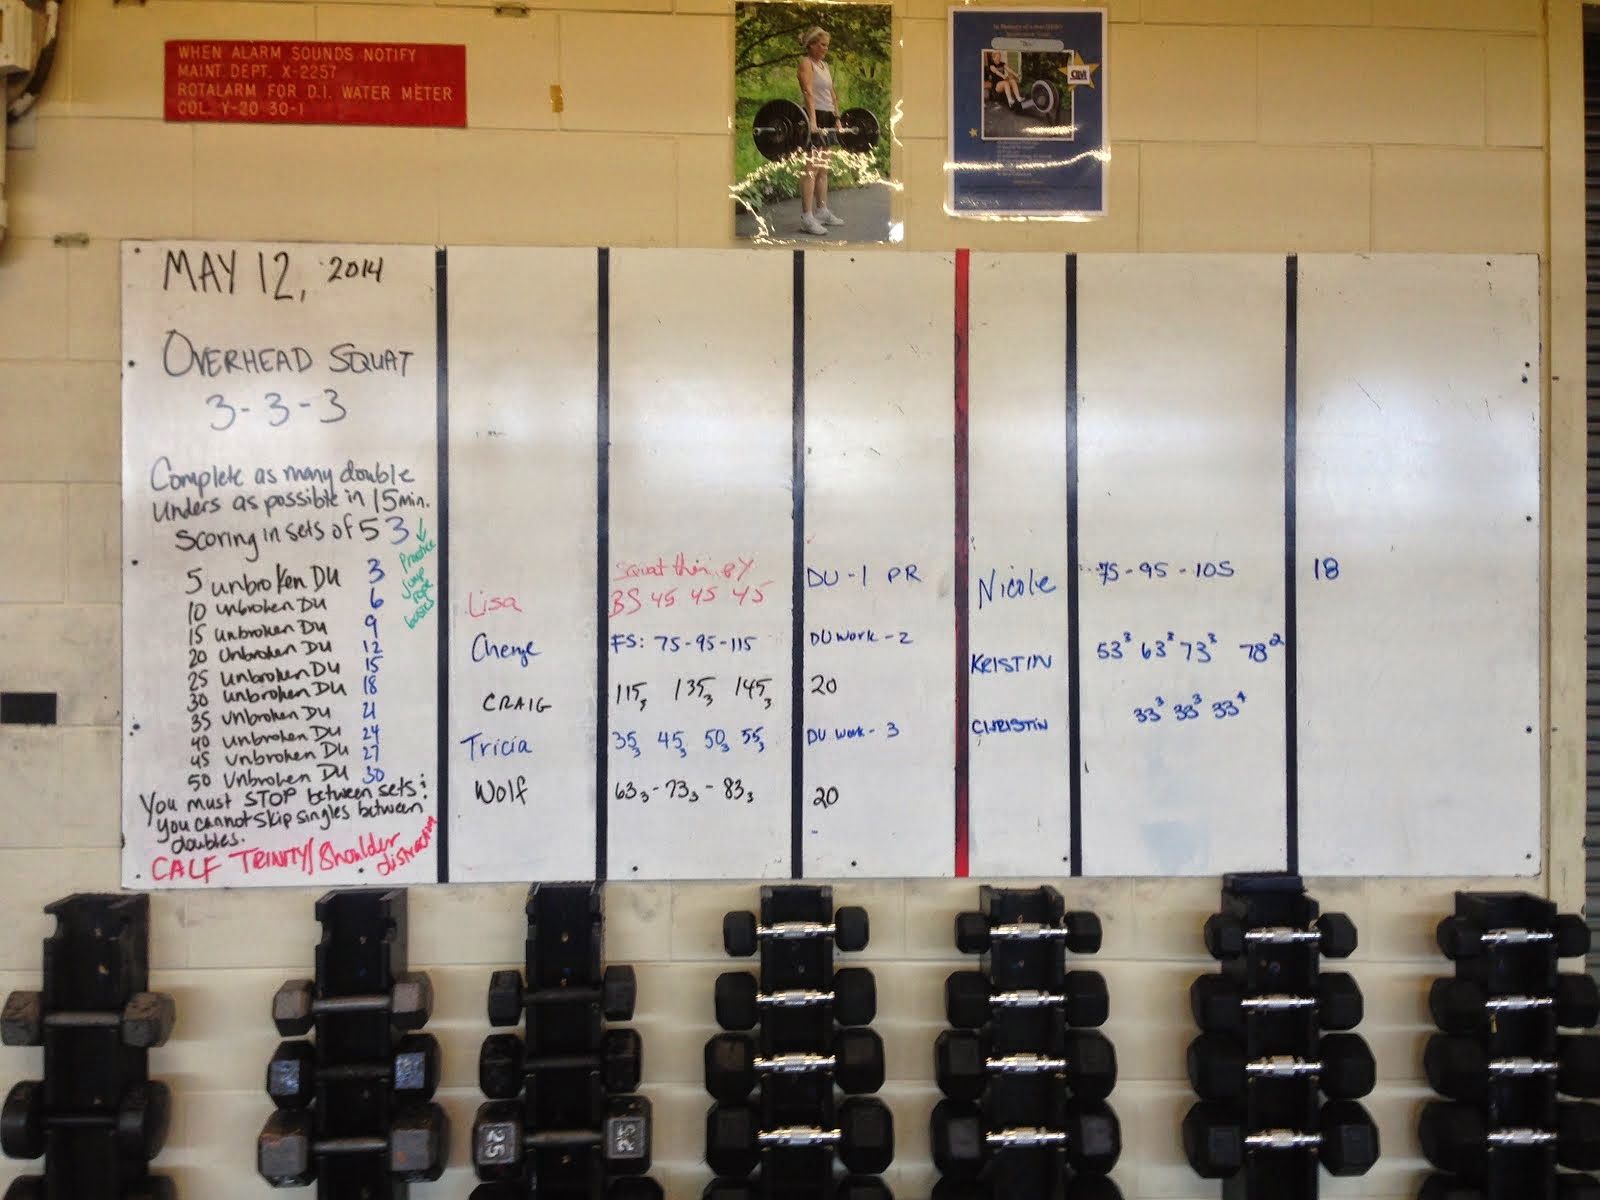 WHEN ALARM SOUNDS NOTIFY
MAINT. DEPT. X-2257
ROTALARM FOR D.I. WATER METER
COL. Y-20 30-1
MAY 12, 2014
OVERHEAD SQUAT
3-3-3
Complete as many double
unders as possible in 15 min.
Scoring in sets of 5 3
Practice
Jump
rope
basics
5 unbroken DU 3
10 unbroken DU 6
15 Unbroken DU 9
20 Unbroken DU 12
25 Unbroken DU 15
30 unbroken DU 18
35 unbroken DU 21
40 unbroken DU 24
45 Unbroken DU 27
50 Unbroken DU 30
You must STOP between sets:
you cannot skip singles between
doubles.
CALF TRINITY/Shoulder
distraction
Lisa
BS 45 45 45
DU-1 PR
FS: 75-95-115
DU work-2
CRAIG 115₃ 135₃ 145₃ 20
Tricia 35₃ 45₃ 50₃ 55₃ DU work-3
Wolf 63₃-73₃-83₃ 20
Nicole 75-95-105 18
KRISTIN 53³ 63³ 73³ 78²
CHRISTIN 33³ 33³ 33⁴
25
25